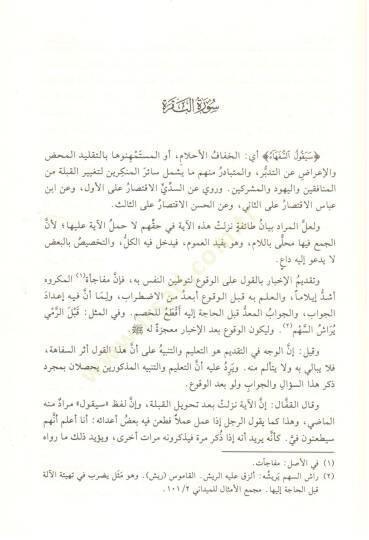 سورة البقرة
﴿سَيَقُولُ السُّفَهَاءُ﴾ أي: الخفافُ الأحلام، أو المستَمْهِنوها بالتقليد المحض
والإعراضِ عن التدبُّر، والمتبادرُ منهم ما يشمل سائرَ المنكِرين لتغيير القبلة من
المنافقين واليهود والمشركين. وروي عن السدِّيِّ الاقتصارُ على الأول، وعن ابن
عباس الاقتصار على الثاني، وعن الحسن الاقتصار على الثالث.
ولعلَّ المراد بيانُ طائفةٍ نزلتْ هذه الآية في حقِّهم لا حملُ الآية عليها؛ لأنَّ
الجمع فيها محلًّى باللام، وهو يفيد العموم، فيدخل فيه الكلُّ، والتخصيصُ بالبعض
لا يدعو إليه داعٍ.
وتقديمُ الإخبار بالقول على الوقوع لتوطين النفس به، فإنَّ مفاجأة(١) المكروه
أشدُّ إيلاماً، والعلم به قبل الوقوع أبعدُ من الاضطراب، ولِمَا أنَّ فيه إعدادَ
الجواب، والجوابُ المعدُّ قبل الحاجة إليه أَقْطَعُ للخصم. وفي المثل: قَبْلَ الرَّمْي
يُرَاشُ السَّهْم(٢). وليكون الوقوع بعد الإخبار معجزةً له ﷺ.
وقيل: إنَّ الوجه في التقديم هو التعليم والتنبيهُ على أنَّ هذا القول أثر السفاهة،
فلا يبالى به ولا يتألم منه. ويَرِدُ عليه أنَّ التعليم والتنبيه المذكورين يحصلان بمجرد
ذكر هذا السؤالِ والجوابِ ولو بعد الوقوع.
وقال القفَّال: إنَّ الآية نزلتْ بعد تحويل القبلة، وإنَّ لفظ «سيقول» مرادٌ منه
الماضي، وهذا كما يقول الرجل إذا عمل عملاً فطعن فيه بعضُ أعدائه: أنا أعلم أنَّهم
سيطعنون فيَّ. كأنَّه يريد أنه إذا ذُكر مرة فيذكرونه مرات أخرى، ويؤيد ذلك ما رواه
(١) في الأصل: مفاجآت.
(٢) راش السهم يَريشُه: ألزق عليه الريش. القاموس (ريش). وهو مَثَل يضرب في تهيئة الآلة
قبل الحاجة إليها. مجمع الأمثال للميداني ١٠١/٢.